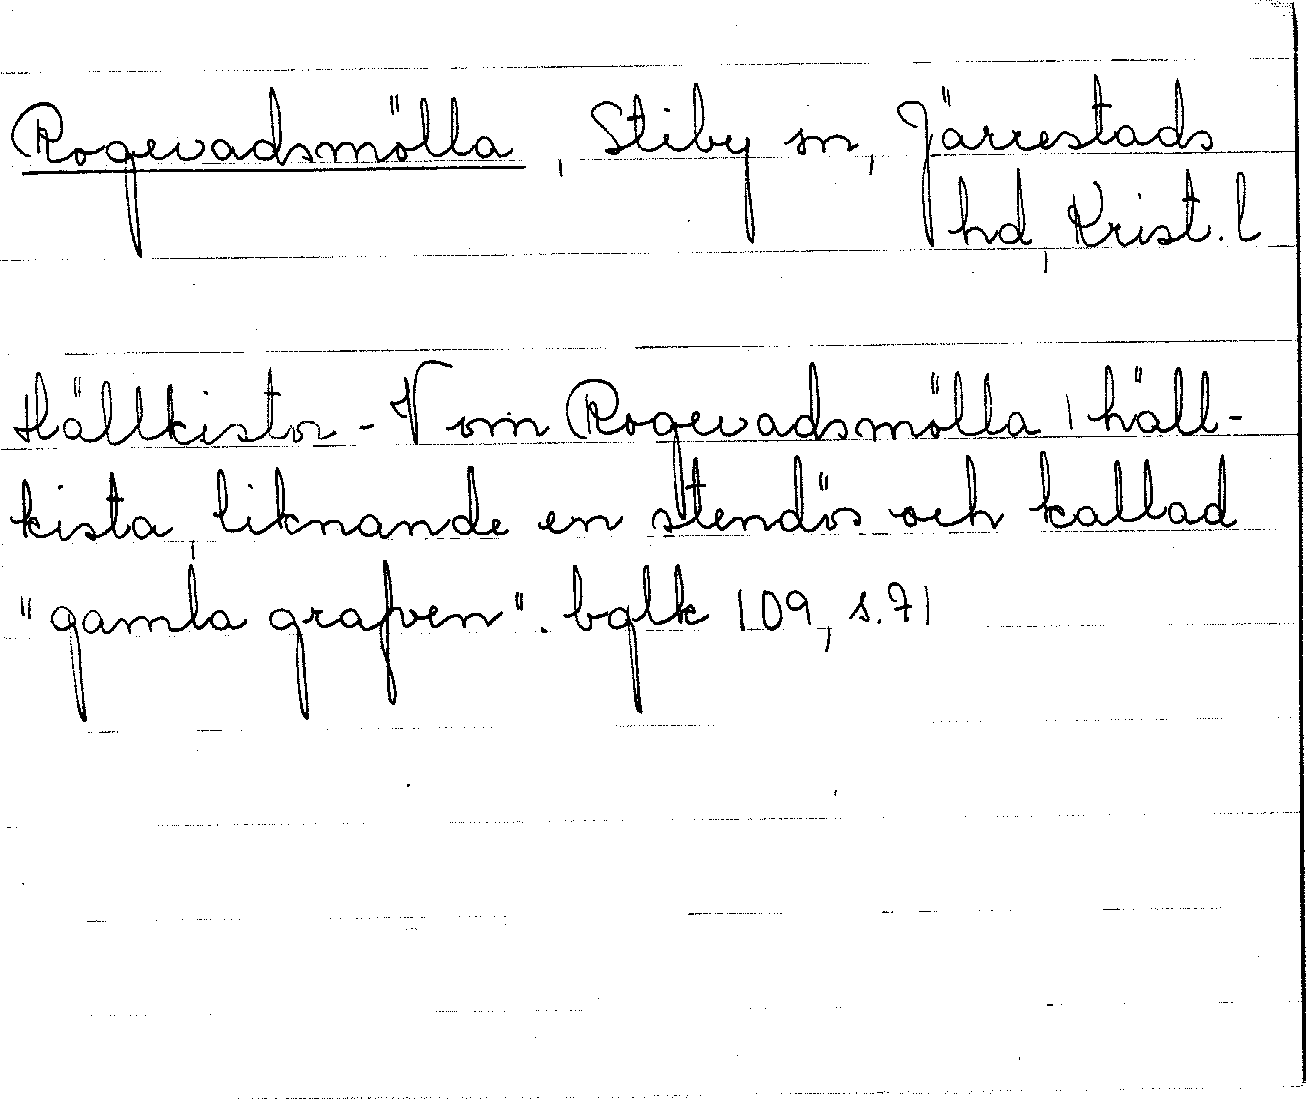 Rogevadsmölla, Stiby sn, Järrestads
hd, Krist. l
Hällkistor - V om Rogevadsmölla 1 häll-
kista, liknande en stendös och kallad
"gamla grafven". bglk 109, s. 71